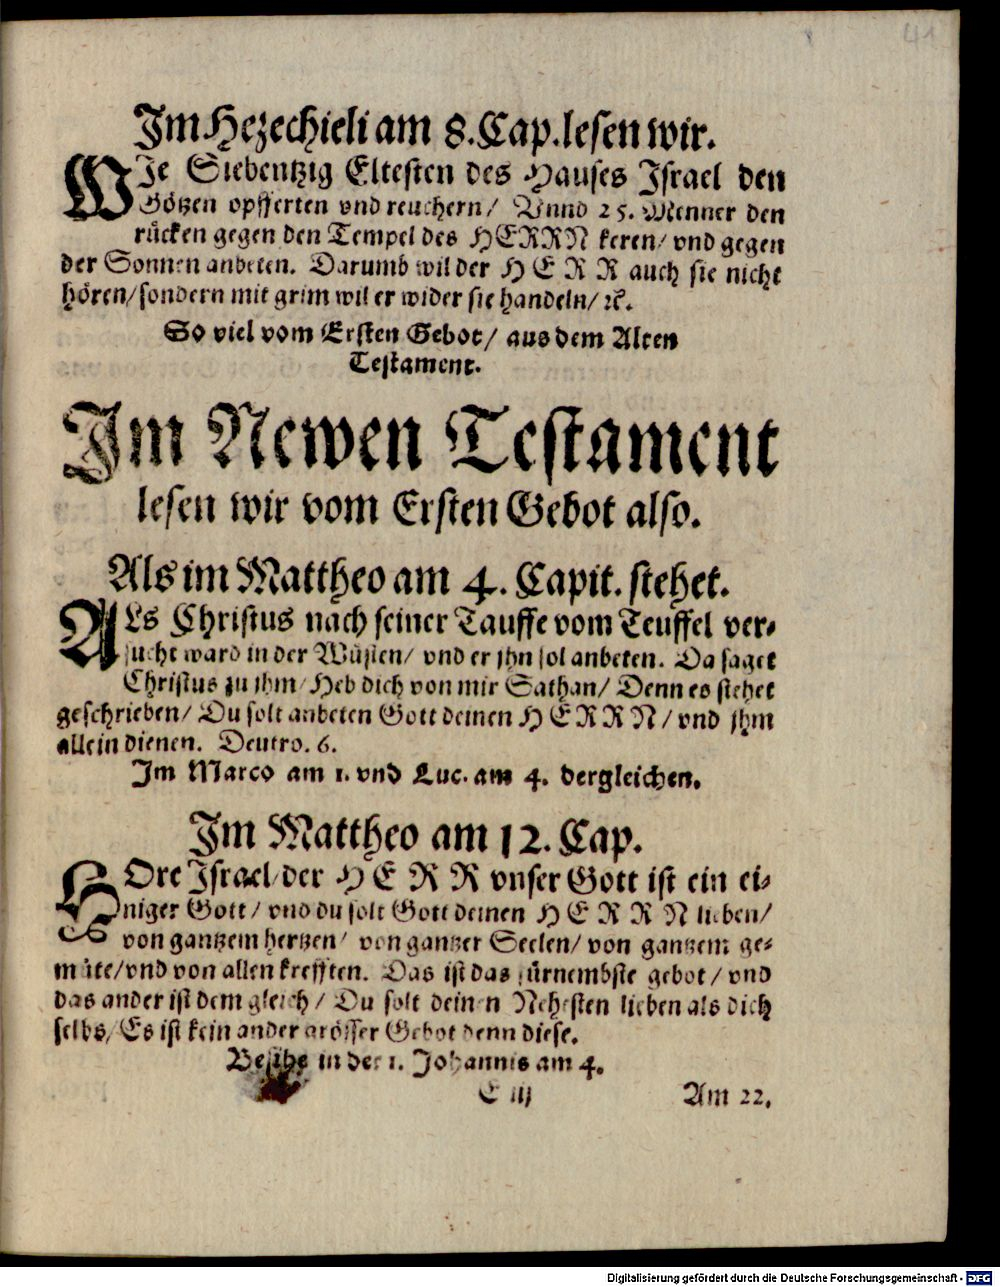 41
Im Hezechieli am 8. Cap. lesen wir.
WIe Siebentzig Eltesten des Hauses Israel den
Götzen opfferten vnd reuchern/ Vnnd 25. Menner den
rücken gegen den Tempel des HERRN keren/ vnd gegen
der Sonnen anbeten. Darumb wil der HERR auch sie nicht
hören/ sondern mit grim wil er wider sie handeln/ ꝛc.
So viel vom Ersten Gebot/ aus dem Alten
Testament.
Im Newen Testament
lesen wir vom Ersten Gebot also.
Als im Mattheo am 4. Capit. stehet.
ALs Christus nach seiner Tauffe vom Teuffel ver-
sucht ward in der Wüsten/ vnd er jhn sol anbeten. Da saget
Christus zu jhm/ Heb dich von mir Sathan/ Denn es stehet
geschrieben/ Du solt anbeten Gott deinen HERRN/ vnd jhm
allein dienen. Deutro. 6.
Im Marco am 1. vnd Luc. am 4. dergleichen.
Im Mattheo am 12. Cap.
HOre Israel/ der HERR vnser Gott ist ein ei-
niger Gott/ vnd du solt Gott deinen HERRN lieben/
von gantzem hertzen/ von gantzer Seelen/ von gantzem ge-
müte/ vnd von allen krefften. Das ist das fürnembste gebot/ vnd
das ander ist dem gleich/ Du solt deinen Nehesten lieben als dich
selbs/ Es ist kein ander grösser Gebot denn diese.
Besihe in der 1. Johannis am 4.
E iij Am 22.
Digitalisierung gefördert durch die Deutsche Forschungsgemeinschaft - DFG